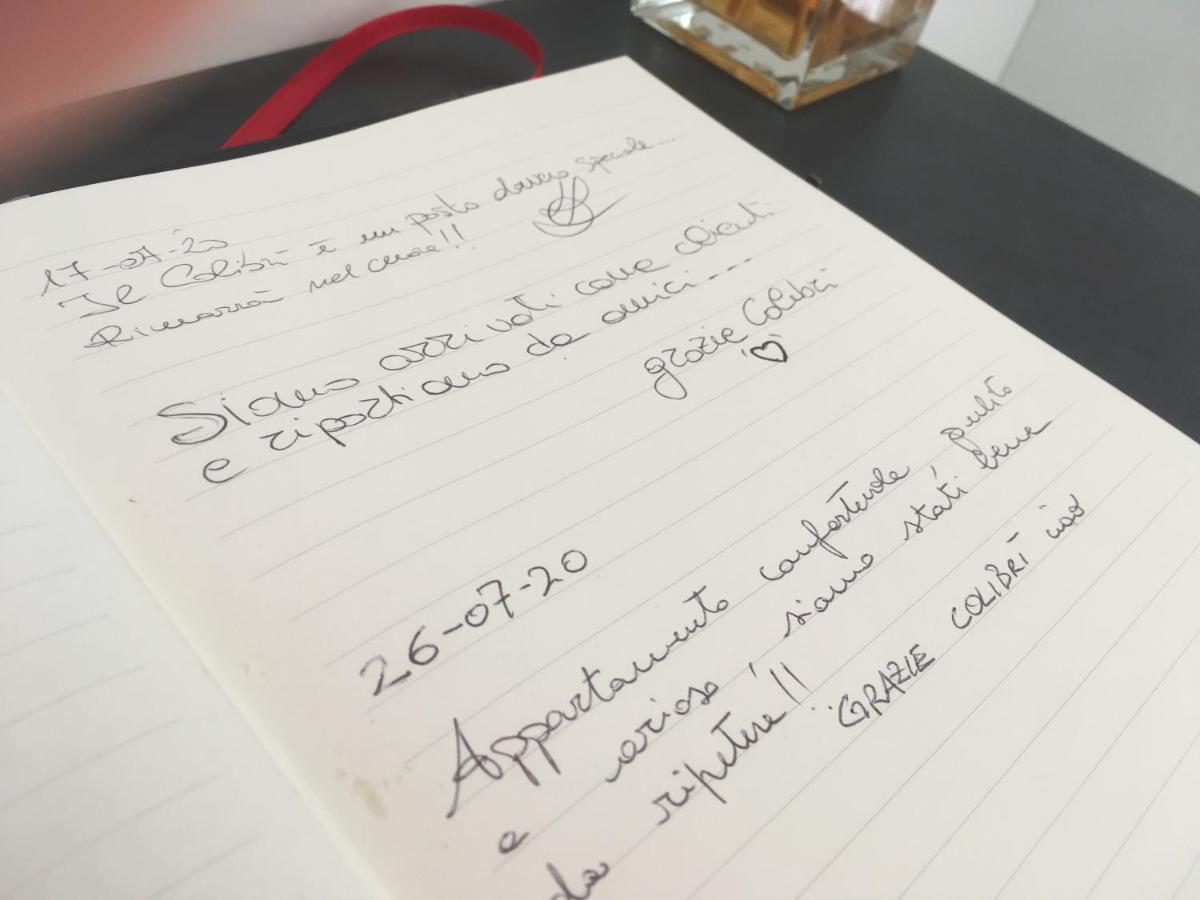 17-07-20
Il Colibrì è un posto davvero speciale...
Rimarrà nel cuore!!
Siamo arrivati come clienti
e ripartiamo da amici....
grazie Colibrì
26-07-20
Appartamento confortevole, pulito
e arioso, siamo stati bene
da ripetere!!
GRAZIE COLIBRÌ